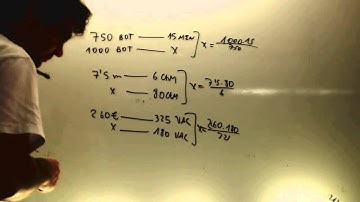 750 BOT — 15 MIN
1000 BOT — X
X = 1000·15 / 750
7'5 m — 6 CAM
X — 80 CAM
X = 7'5·80 / 6
260€ — 325 VAC
X — 180 VAC
X = 260·180 / 325